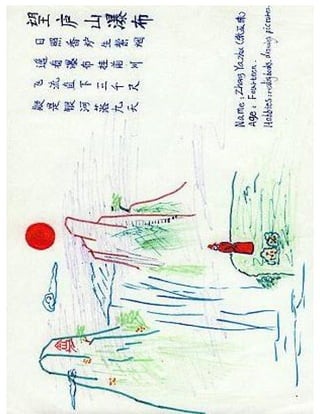 望庐山瀑布
日照香炉生紫烟
遥看瀑布挂前川
飞流直下三千尺
疑是银河落九天
Name: Zhang Yazhu
Age: Fourteen.
Hobbies: reading books, drawing pictures.